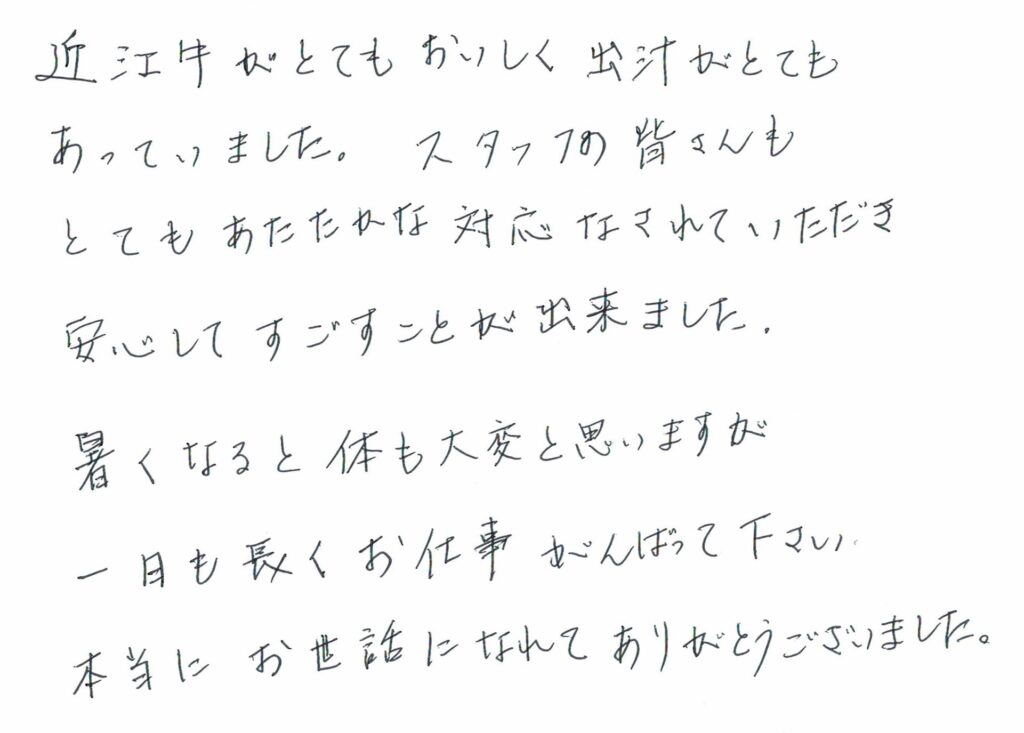 近江牛がとてもおいしく 出汁がとても
あっていました。 スタッフの皆さんも
とてもあたたかな対応なされていただき
安心してすごすことが出来ました.
暑くなると体も大変と思いますが
一日も長くお仕事がんばって下さい.
本当に お世話になれてありがとうございました。